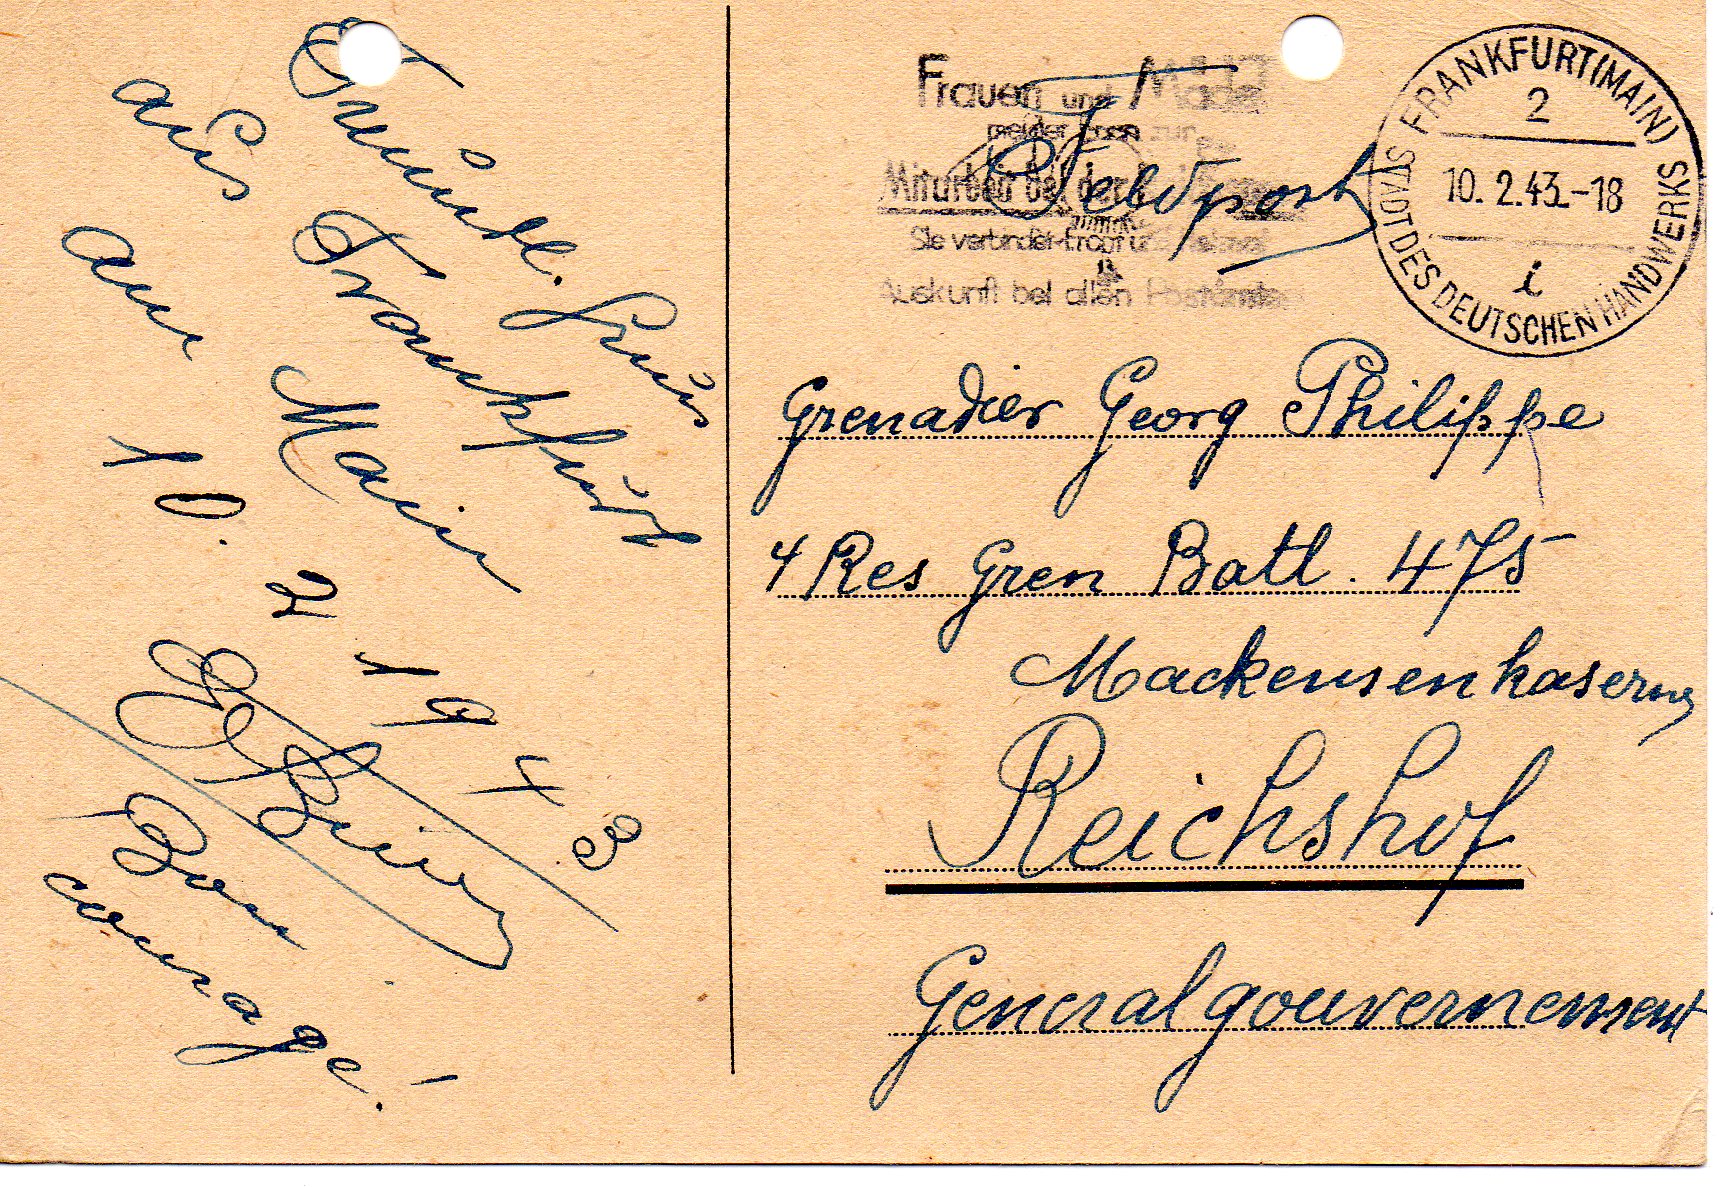 Freundl. Grüss
aus Frankfurt
am Main
10. 2 1943
Bon
courage!
Frauen und Mädel
meldet Euch zur
Mitarbeit bei der
Sie verbindet Front und Heimat
Auskunft bei allen Postämtern
Feldpost
FRANKFURT(MAIN)
2
10. 2.43.-18
i
STADT DES DEUTSCHEN HANDWERKS
Grenadier Georg Philippe
4 Res Gren Batl. 475
Mackensenkaserne
Reichshof
Generalgouvernement